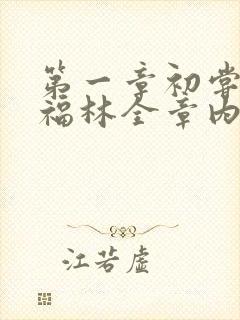 第一章初尝
福林全章内
江若虚